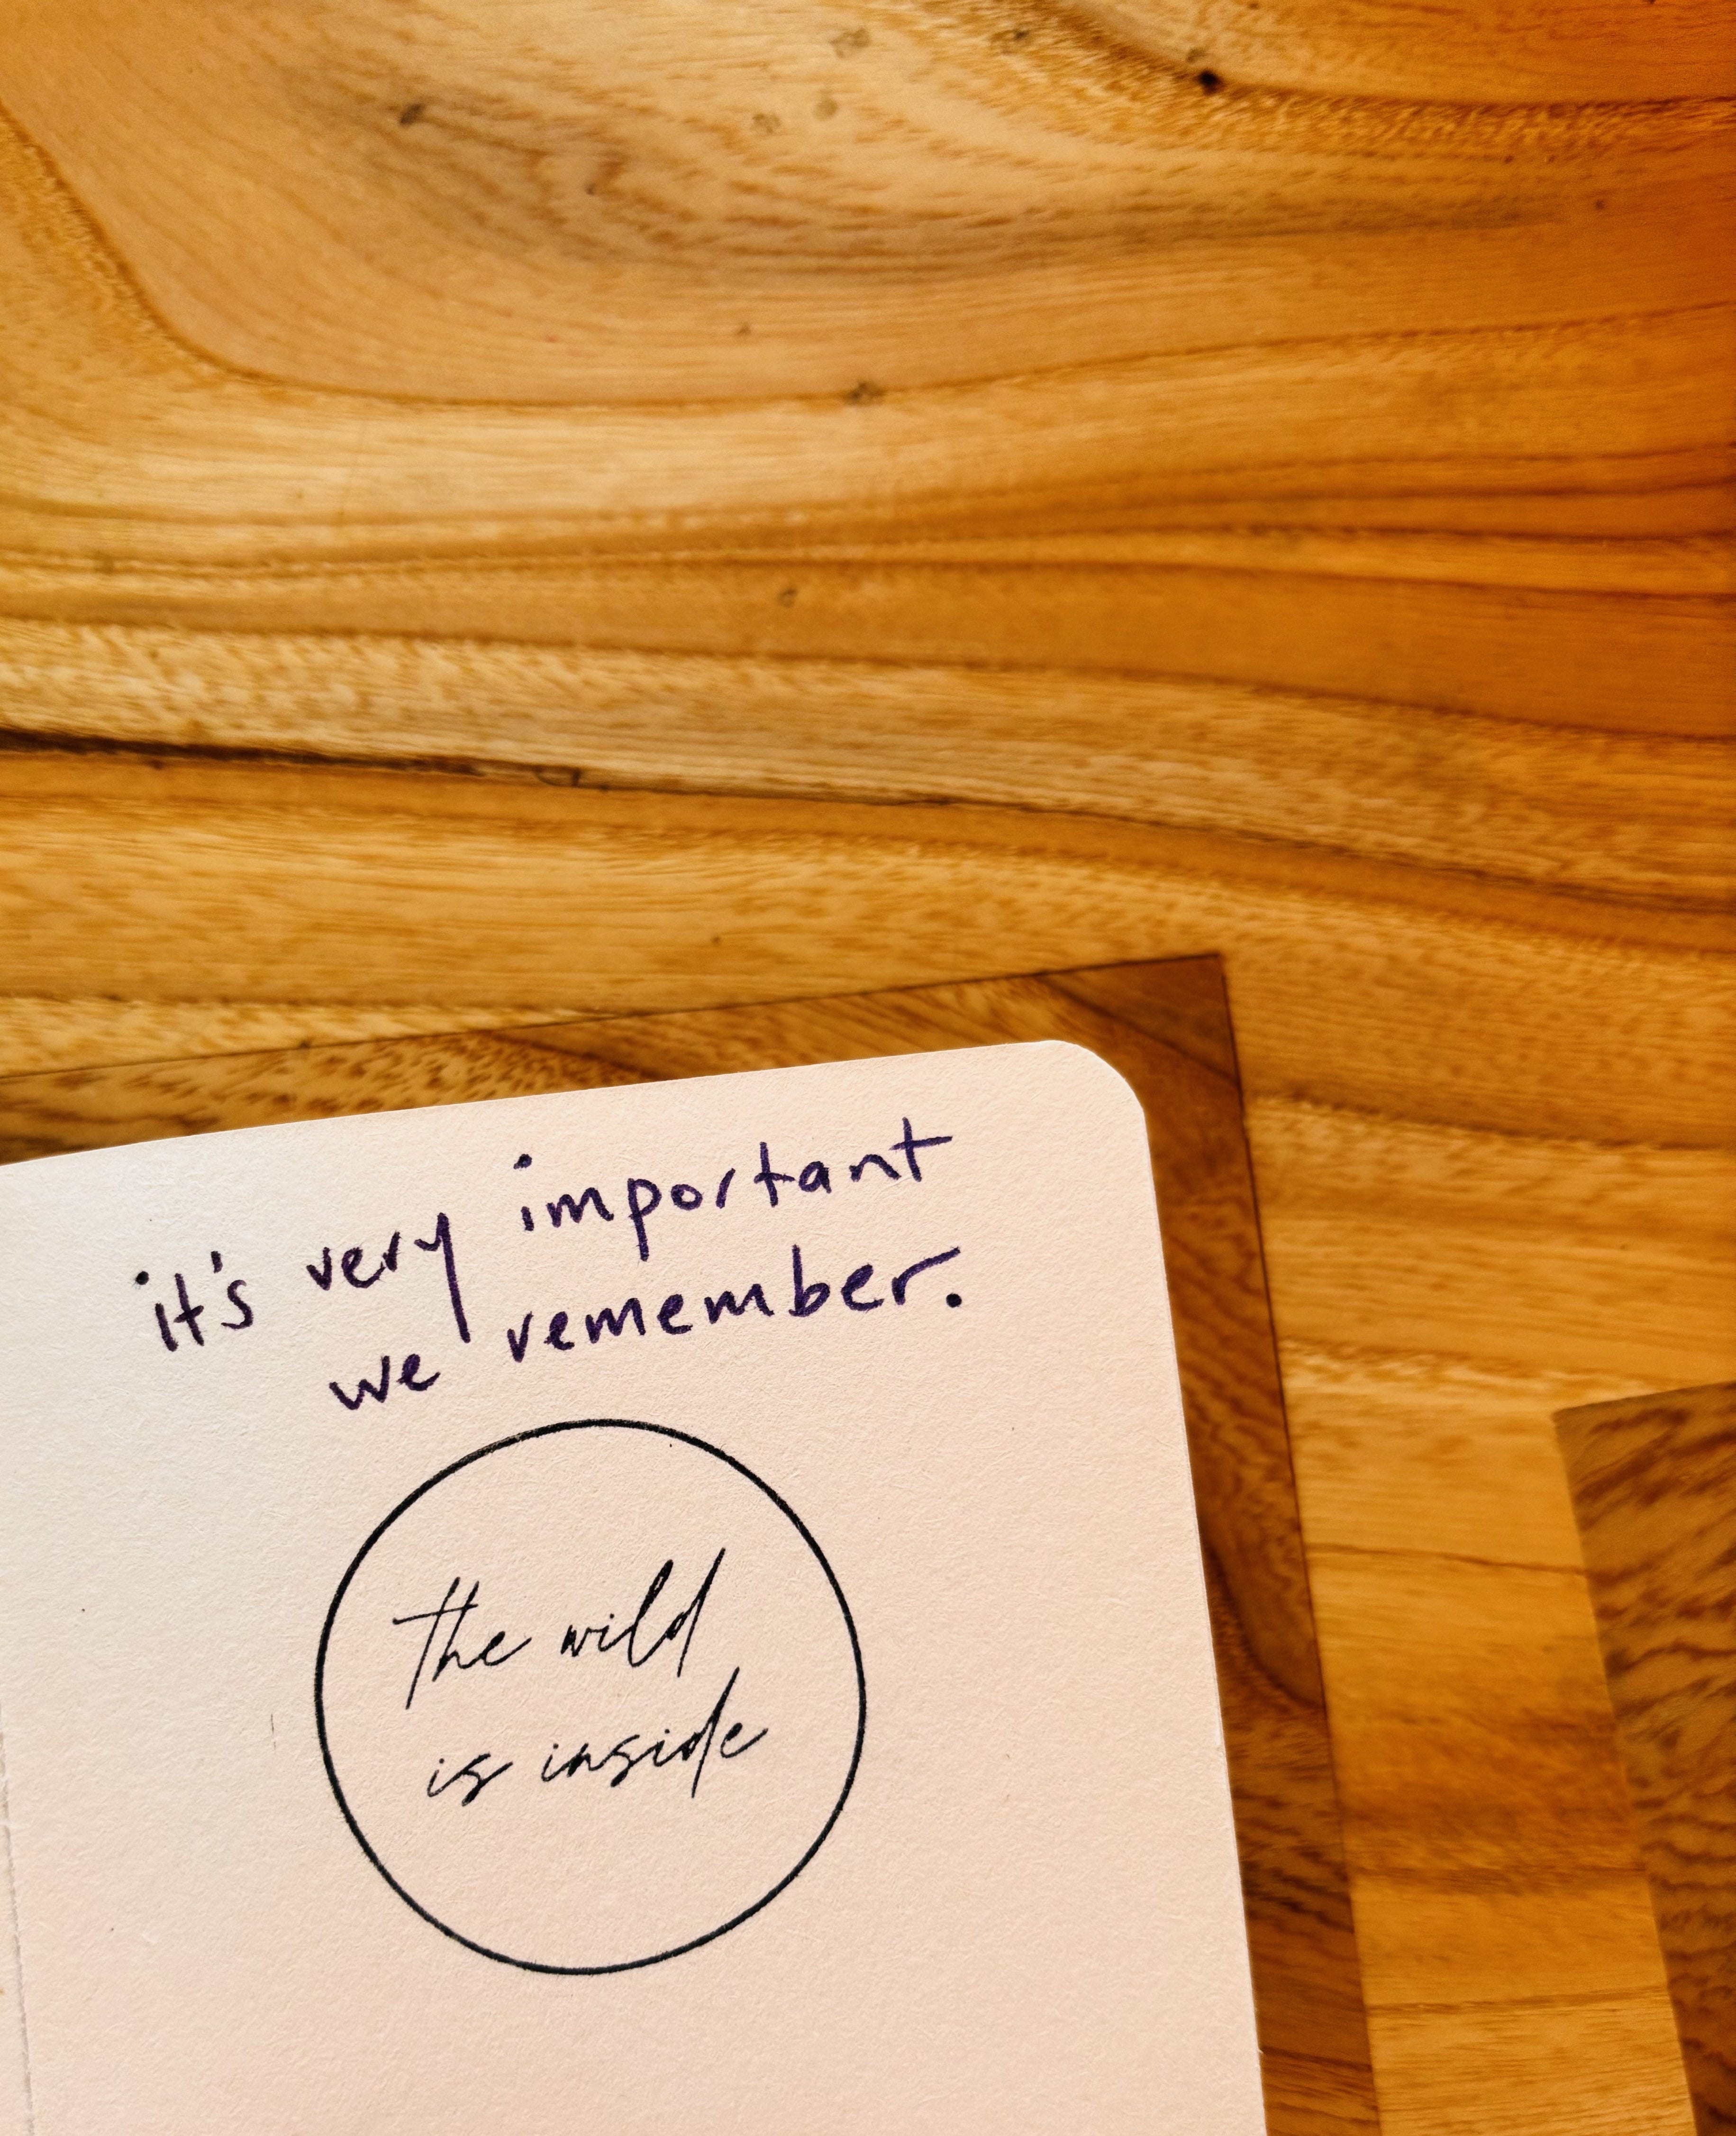 it's very important
we remember.
the wild
is inside